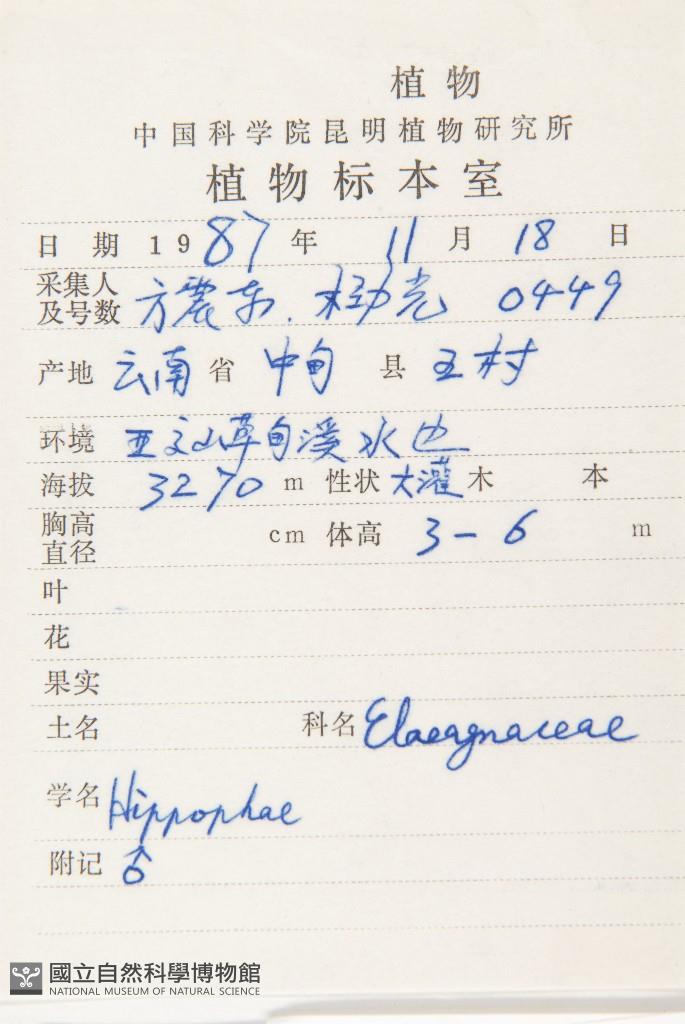 植物
中国科学院昆明植物研究所
植物标本室
日 期 1987年 11月 18日
采集人及号数 方震东. 杨光 0449
产地 云南省 中甸 县 王村
环境 亚文山草甸溪水边
海拔 3270 m 性状 大灌木 本
胸高直径 cm 体高 3-6 m
叶
花
果实
土名 科名 Elaeagnaceae
学名 Hippophae
附记 ♂
國立自然科學博物館
NATIONAL MUSEUM OF NATURAL SCIENCE